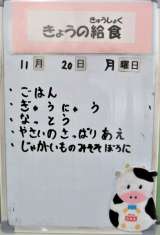 きゅうしょく
きょうの給食
11月 20日 月曜日
・ごはん
・ぎゅうにゅう
・なっとう
・やさいのさっぱりあえ
・じゃがいものみそそぼろに